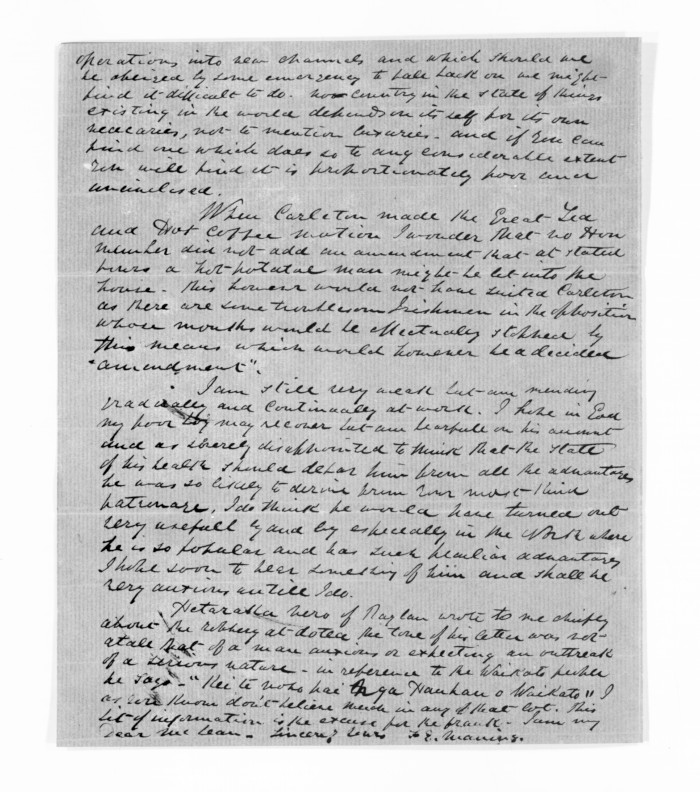 operations into new channels and which should we
be obenged by some emergency to fall back on we might
find it difficult to do. no country in the state of things
existing in the world depends on its self for its own
necearies, not to mention luxuries. and if you can
find one which does so to any considerable extent
you will find it is proportionately poor and
uncivilised.
When Carleton made the Great Tea
and Hot Coffee motion I wonder that no Hon
member did not add an amendment that at stated
hours a hot potatoe man might be let into the
house. this however would not have suited Carleton
as there are some troublesom Irishmen in the opposition
whose mouths would be effectually stopped by
this means which would however be a decided
"amendment".
I am still very weak but am mending
gradually and continually at work. I hope in God
my poor boy may recover but am fearfull on his account
and as severely disappointed to think that the state
of his health should debar him from all the advantages
he was so likely to derive from your most kind
patronage, I do think he would have turned out
very usefull by and by especially in the North where
he is so popular and has such peculiar advantages
I hope soon to hear something of him and shall be
very anxious untill I do.
Hetaraka Nero of Raglan wrote to me chiefly
about the robbery at the tone of his letter was not
atall that of a man anxious or expecting an outbreak
of a serious nature - in reference to the Waikato people
he says - "Kei te noho pai nga Hauhau o Waikato" I
as you know don't believe much in any of that lot. this
bit of information is the excuse for the frank - I am my
Dear McLean - Sincerely yours F E. Maning.